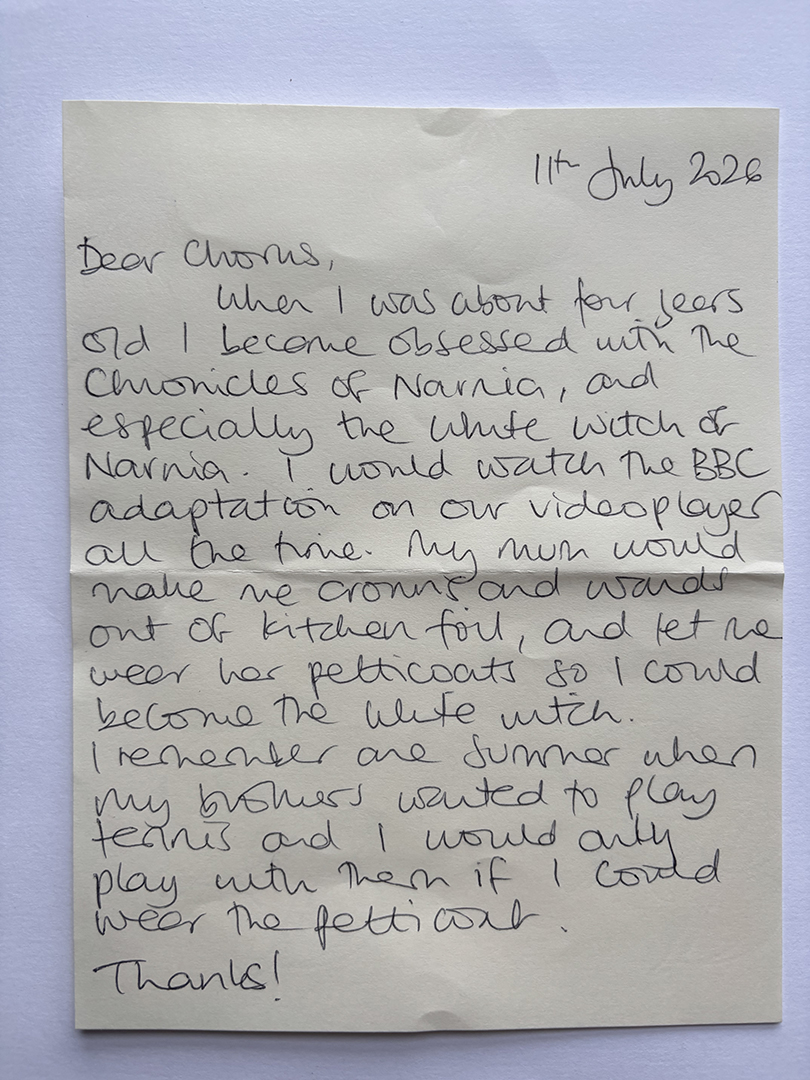 11th July 2026
Dear Chorus,
When I was about four years
old I became obsessed with the
Chronicles of Narnia, and
especially the White Witch of
Narnia. I would watch the BBC
adaptation on our videoplayer
all the time. My mum would
make me crowns and wands
out of kitchen foil, and let me
wear her petticoats so I could
become the white witch.
I remember one summer when
my brothers wanted to play
tennis and I would only
play with them if I could
wear the petticoat.
Thanks!